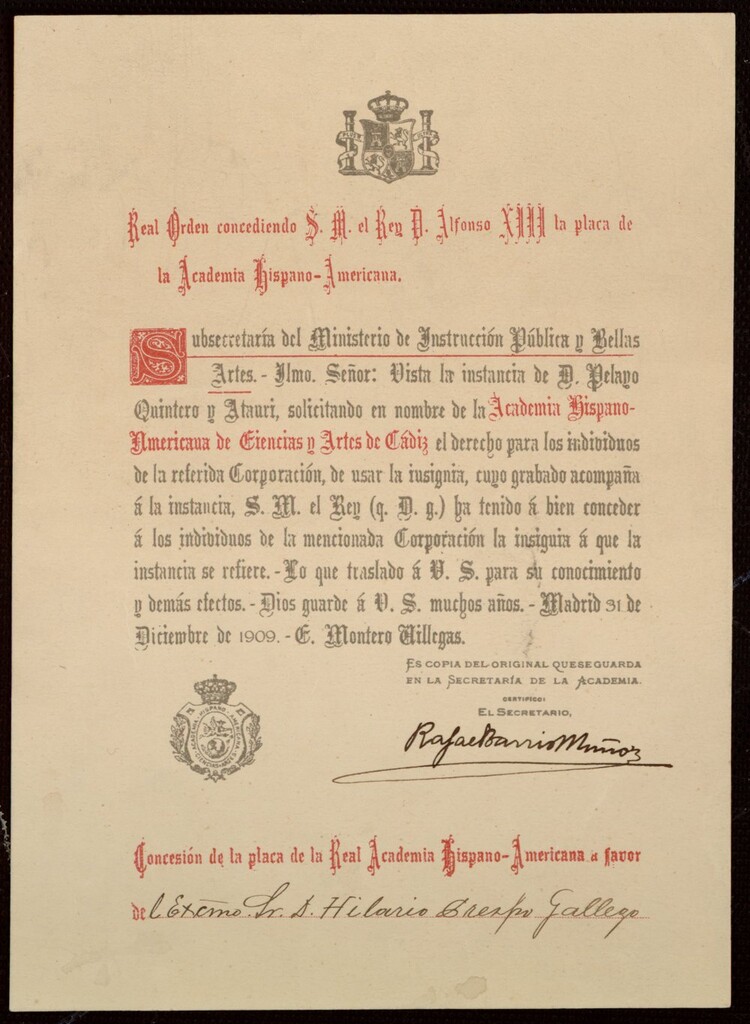 Real Orden concediendo S. M. el Rey D. Alfonso XIII la placa de
la Academia Hispano-Americana.
Subsecretaría del Ministerio de Instrucción Pública y Bellas
Artes. - Ilmo. Señor: Vista la instancia de D. Pelayo
Quintero y Atauri, solicitando en nombre de la Academia Hispano-
Americana de Ciencias y Artes de Cádiz el derecho para los individuos
de la referida Corporación, de usar la insignia, cuyo grabado acompaña
á la instancia, S. M. el Rey (q. D. g.) ha tenido á bien conceder
á los individuos de la mencionada Corporación la insignia á que la
instancia se refiere. - Lo que traslado á V. S. para su conocimiento
y demás efectos. - Dios guarde á V. S. muchos años. - Madrid 31 de
Diciembre de 1909. - E. Montero Villegas.
ES COPIA DEL ORIGINAL QUE SE GUARDA
EN LA SECRETARÍA DE LA ACADEMIA.
CERTIFICO:
EL SECRETARIO,
Rafael Barrio Muñoz
ACADEMIA HISPANO AMERICANA
CIENCIAS Y ARTES
Concesión de la placa de la Real Academia Hispano-Americana a favor
de l Excmo. Sr. D. Hilario Crespo Gallego